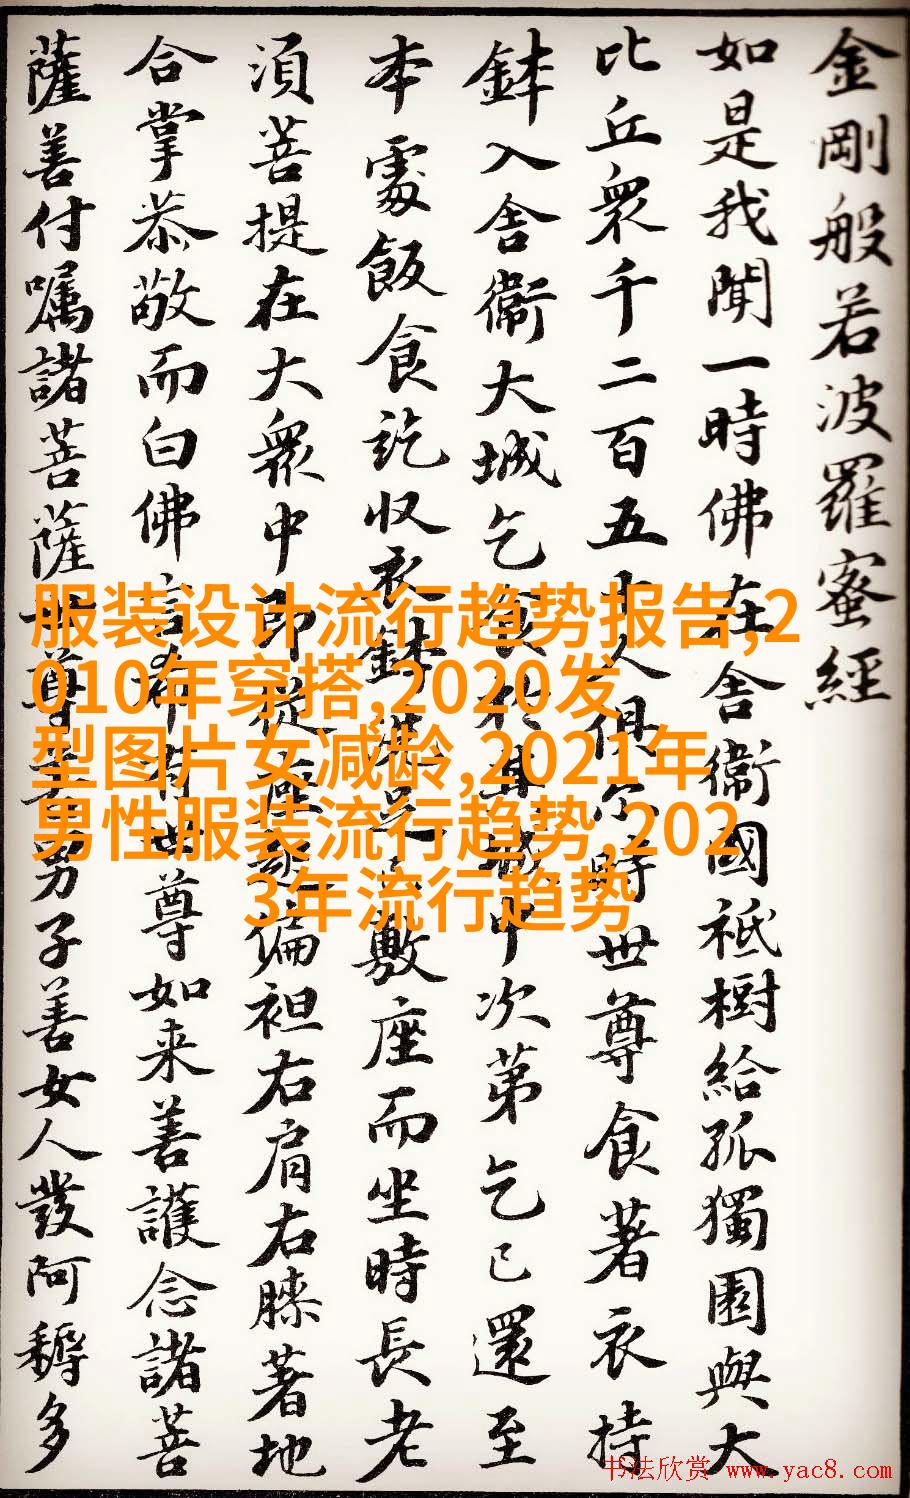 金剛般若波羅蜜經
如是我聞一時佛在舍衞國祇樹給孤獨園與大
比丘衆千二百五十人俱尔時世尊食著衣持
鉢入舍衞大城乞食於其城中次第乞已還至
本處飯食訖收衣鉢洗足已敷座而坐時長老
須菩提在大衆中即從座起偏袒右肩右膝著地
合掌恭敬而白佛言希有世尊如来善護念諸菩
薩善付嘱諸菩薩世尊善男子善女人發阿耨多
服装设计流行趋势报告,2
010年穿搭,2020发
型图片女减龄,2021年
男性服装流行趋势,202
3年流行趋势
书法欣赏 www.yac8.com